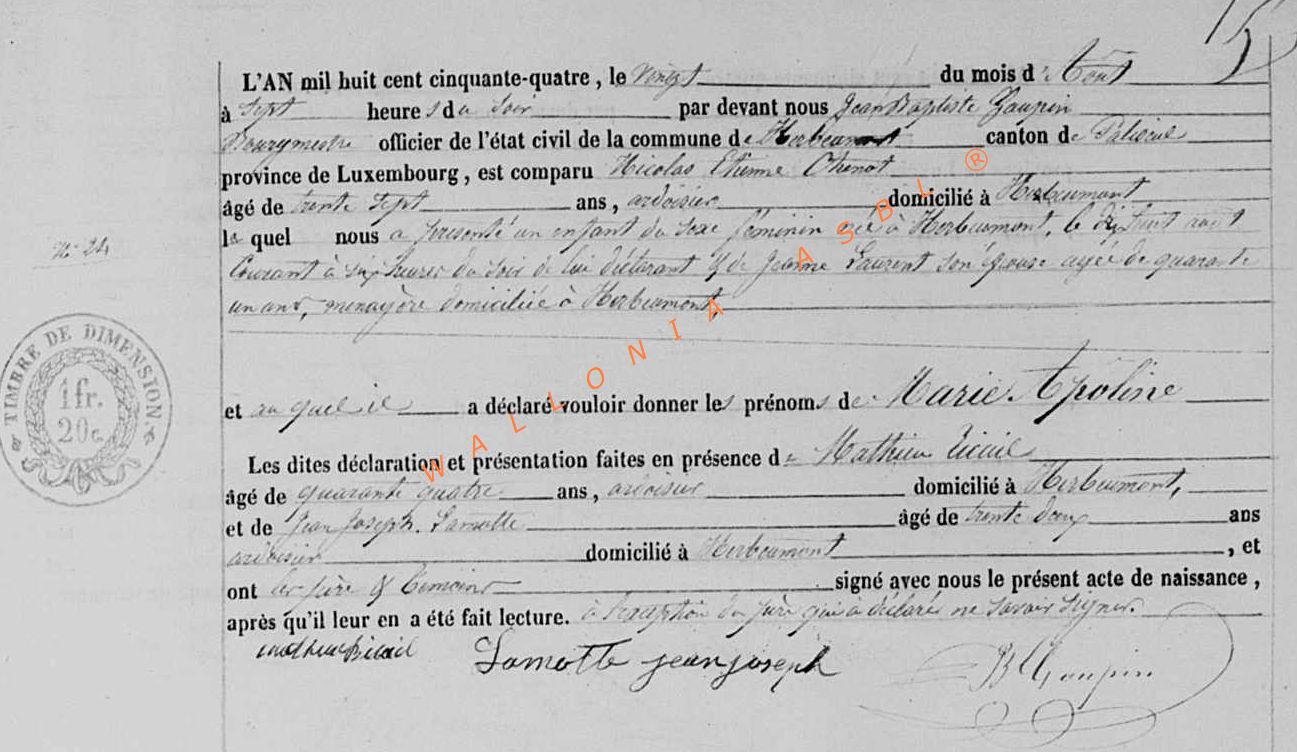 15
L'AN mil huit cent cinquante-quatre, le vingt du mois d'Août
à sept heures du soir par devant nous Jean Baptiste Gaupin
Bourgmestre officier de l'état civil de la commune de Herbeumont canton de Paliseul
province de Luxembourg, est comparu Nicolas Etienne Chenot
âgé de trente sept ans, ardoisier domicilié à Herbeumont
le quel nous a présenté un enfant du sexe féminin née à Herbeumont, le août
N° 24
courant à six heures du soir de lui déclarant & de Jeanne Laurent son épouse agée de quarante
un ans, menagère domiciliée à Herbeumont,
TIMBRE DE DIMENSION.
1 fr.
20 c.
et au quel il a déclaré vouloir donner les prénoms de Marie Apoline
Les dites déclaration et présentation faites en présence de Mathieu
âgé de quarante quatre ans, ardoisier domicilié à Herbeumont,
et de Jean Joseph Lamotte âgé de trente deux ans
ardoisier domicilié à Herbeumont, et
ont les père & temoins signé avec nous le présent acte de naissance,
après qu'il leur en a été fait lecture. à l'exception du père qui a déclaré ne savoir signer.
Lamotte jean joseph
WALLONIA ASBL ®